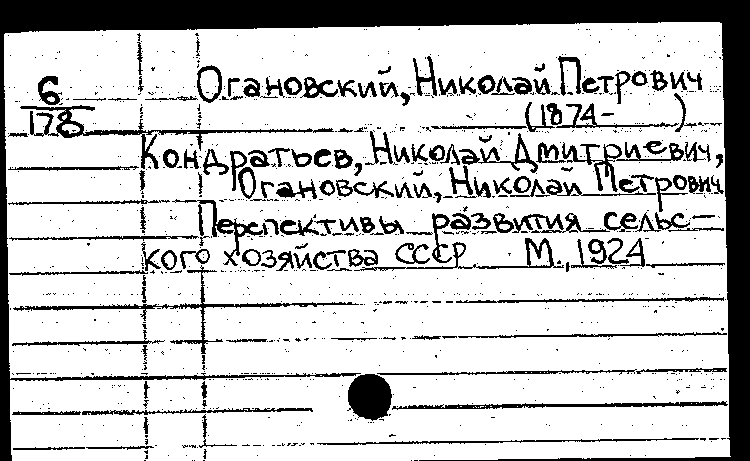 Огановский, Николай Петрович
6
178
(1874- )
Кондратьев, Николай Дмитриевич,
Огановский, Николай Петрович
Перспективы развития сельс-
кого хозяйства СССР М., 1924